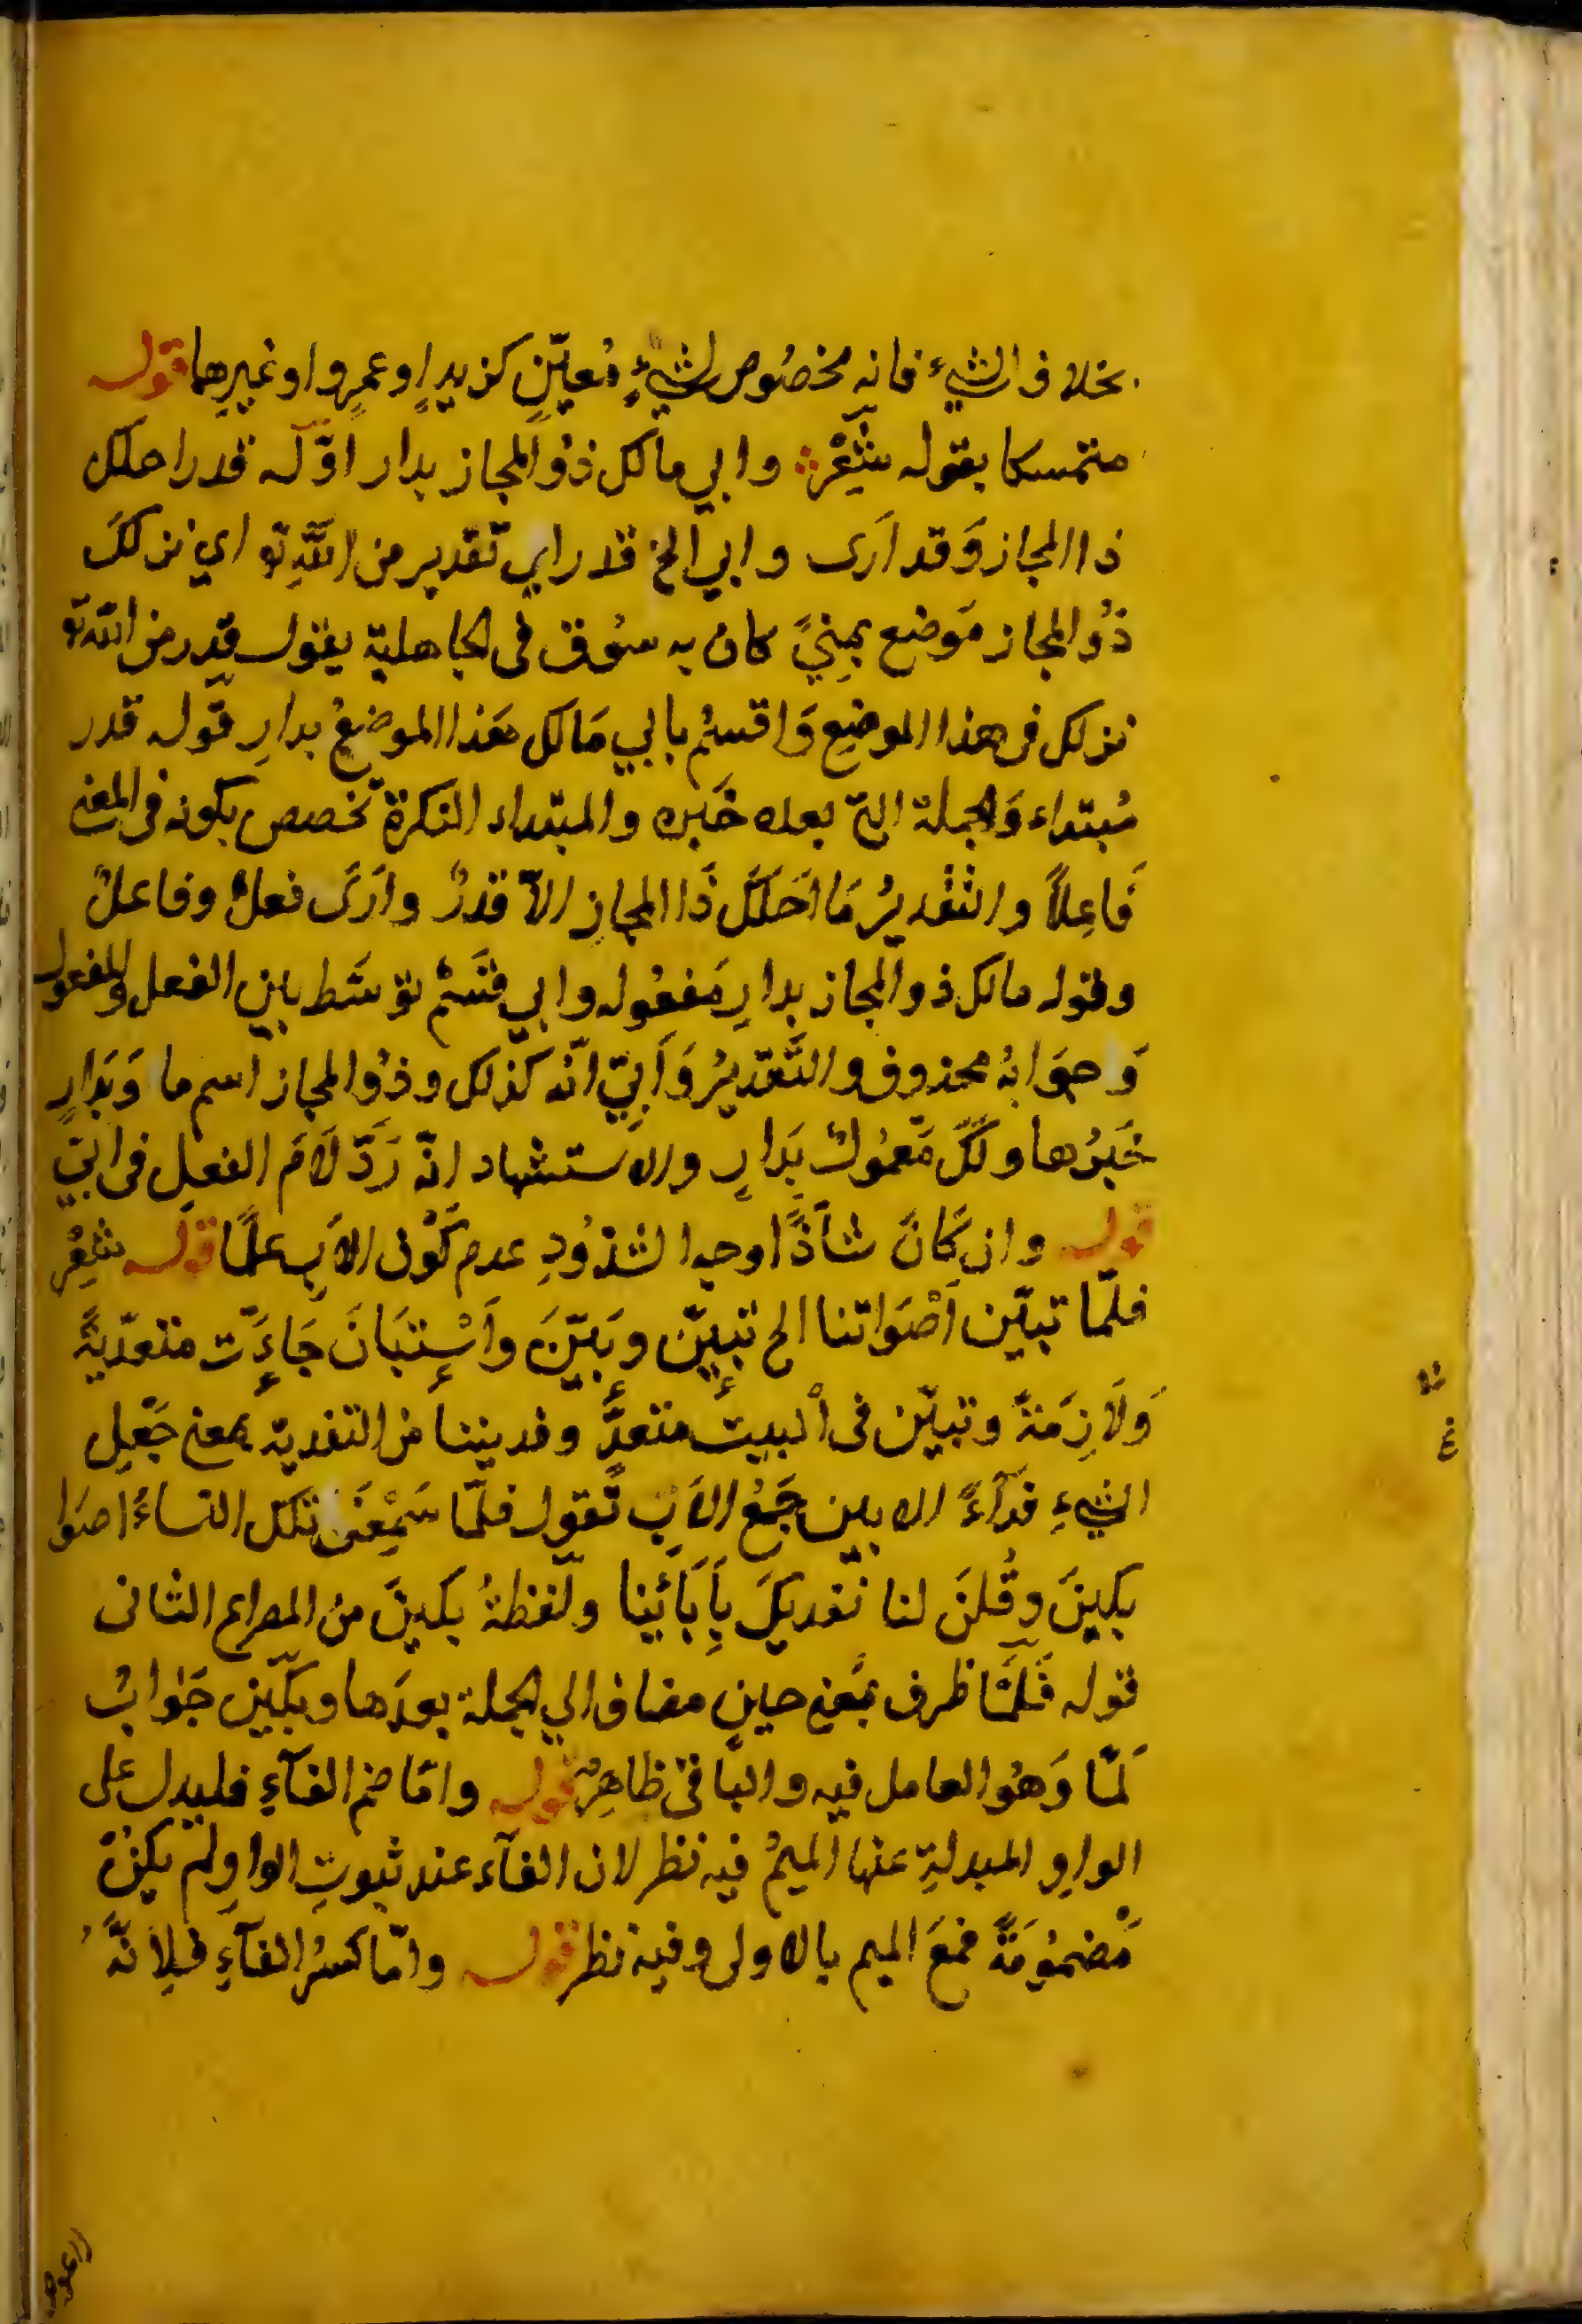 بخلاف الشيء فانه مخصُوص لشيءٍ مُعيّنٍ كزيدٍ او عمرٍو او غيرِهما قوله
متمسكا بقوله شِعْر وابي مالك ذُو المجاز بدار اوّله قدر احلك
ذا المجاز وَقد اَرى وابي الخ قدر اي تقدير من اللّٰه تع اي نزلكَ
ذُو المجاز مَوضع بمِنيً كان به سُوق فى الجاهلية يقول قدر من اللّٰه تع
نزلك فى هذا الموضِع وَاقسمُ بابي مَالك هَذا الموضعُ بدارِ قوله قدر
مُبتداء وَالجملة التي بعده خَبره والمبتداء النكرة تخصص بكونه فى المعنى
فَاعِلاً والتَّقديرُ مَا اَحَلكَ ذَا المجازِ الّا قدرٌ وارَى فعلٌ وفاعلٌ
وقوله مالك ذو المجاز بدارِ مَفعُوله وابي قَسَمٌ توسَّط بين الفعل والمفعول
وَجوَابهُ محذوف والتَّقديرُ وَاَبيّ انّه كذلك وذُو المجاز اسم ما وَبَدارٍ
خَبرُها ولكَ مَعْمُول بَدارٍ والاستشهاد انّه رَدَّ لَامَ الفعل فى ابيّ
قوله وان كَانَ شاَذًّا وجه الشذُوذِ عدم كَوْن الاَبِ علمًا قوله شِعْر
فلمّا تبيّن اَصْوَاتنا الخ تبيّن وبَيَّنَ وَاَسْتبَانَ جَاءَت متعدّيةً
وَلَازِمَةً وتبيّن فى البيت متعدٍّ وفديننا من التفدية بمعنى جَعْل
الشيءِ فدَآءً الابين جَمْع الاَبِ تقول فلمّا سَمِعْنَ تلك النساءُ اصوَا
بكينَ وقُلنَ لنا نفديكَ بِاَبَائِينا ولَفظةُ بكينَ من المصراع الثانى
قوله فَلمَّا ظرف بمعنى حين مضاف الي الجملة بعدَها وبَكَيْن جَوَابُ
لَمّا وَهُو العامل فيه والباقى ظاهِرٌ قوله وامّا ضم الفآءِ فليدل على
الواوِ المبدلةِ عنها الميمُ فيه نظر لان الفآء عند ثبوتِ الواوِ لم يكنْ
مَضمُومَةً فمعَ الميم بالاولى وفيه نظر قوله وامّا كسرُ الفآءِ فلِاَنّهُ